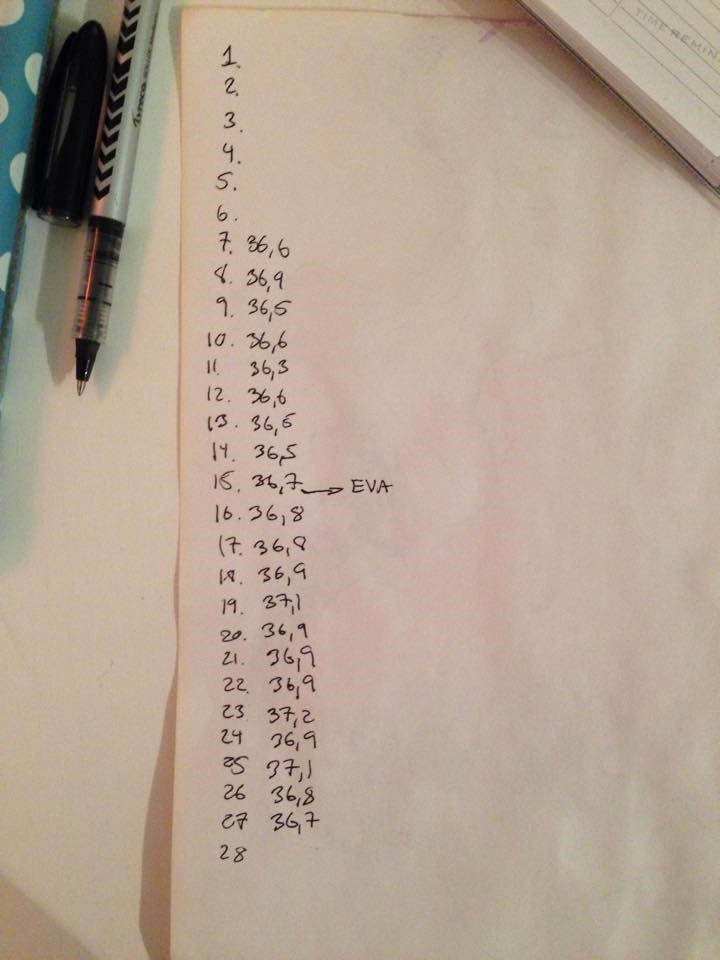 TIME REMIN
1.
2.
3.
4.
5.
6.
7. 36,6
8. 36,9
9. 36,5
10. 36,6
11. 36,3
12. 36,6
13. 36,6
14. 36,5
15. 36,7 → EVA
16. 36,8
17. 36,8
18. 36,9
19. 37,1
20. 36,9
21. 36,9
22. 36,9
23 37,2
24 36,9
25 37,1
26 36,8
27 36,7
28